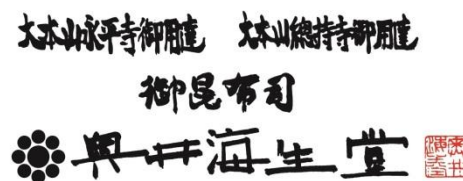 大本山永平寺御用達 大本山總持寺御用達
御昆布司
奥井海生堂
奥井海生堂